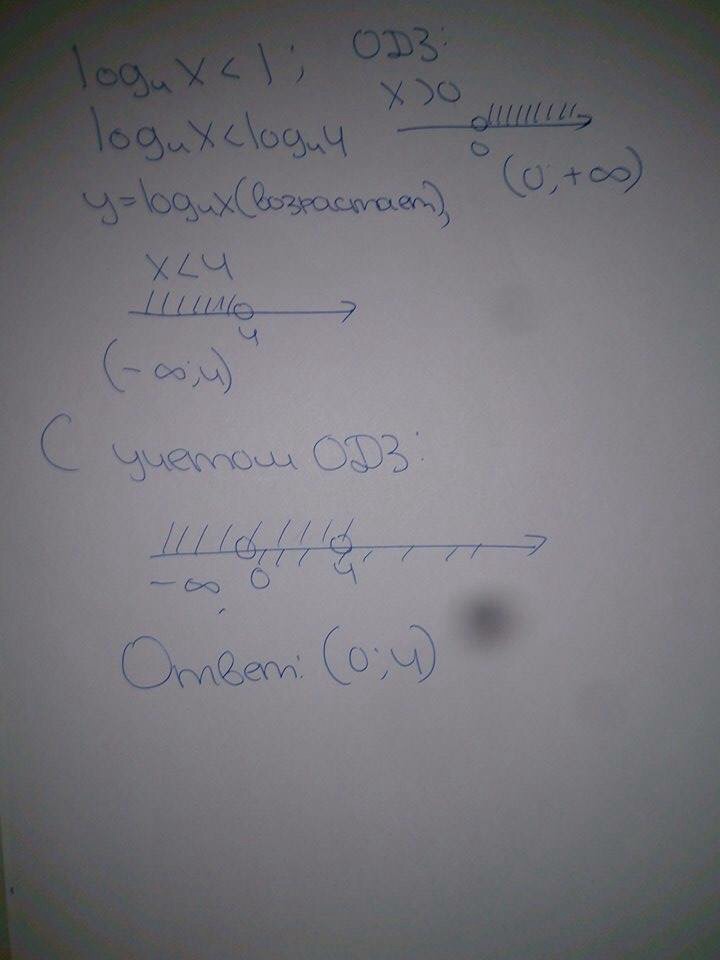 log₄x < 1; ОДЗ:
x > 0
log₄x < log₄4
0
(0; +∞)
y = log₄x (возрастает),
x < 4
4
(-∞; 4)
С учетом ОДЗ:
-∞ 0 4
Ответ: (0; 4)